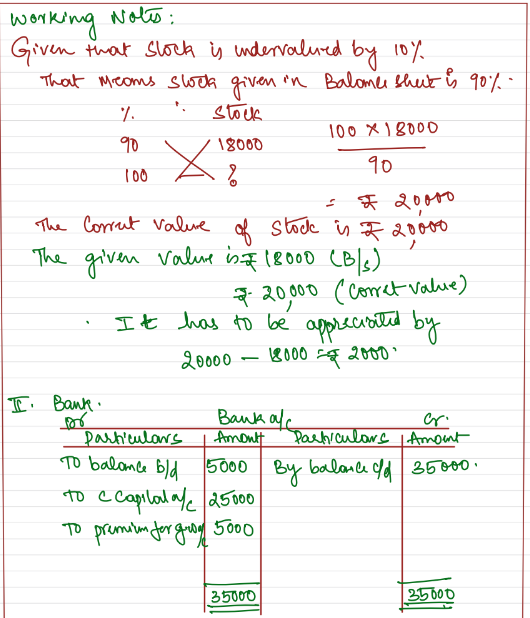 Working Notes:
Given that stock is undervalued by 10%
That means stock given in Balance sheet is 90%.
% : Stock
90 18000 100 X 18000
100 ? 90
= ₹ 20,000
The correct value of stock is ₹ 20,000
The given value is ₹ 18000 (B/s)
₹ 20,000 (correct value)
. It has to be appreciated by
20000 – 18000 = ₹ 2000.
II. Bank.
Dr Bank a/c Cr.
Particulars Amount Particulars Amount
To balance b/d 5000 By balance c/d 35000.
To C Capital a/c 25000
To premium for 5000
35000 35000